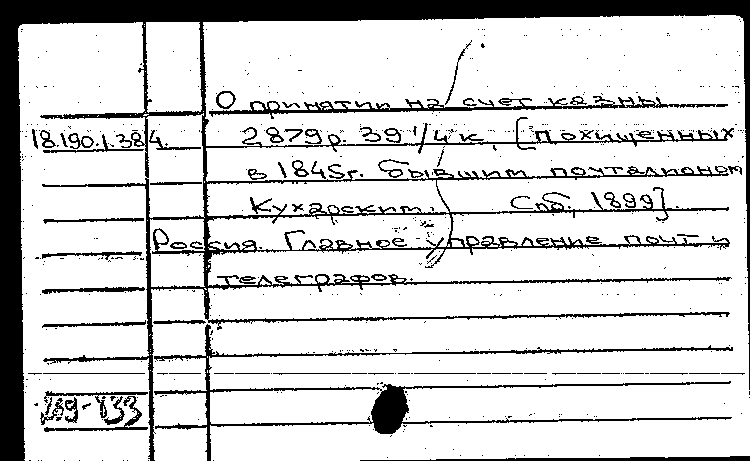 О принятии на счет казны
18.190.1.384. 2,879р. 39 1/4 к. [похищенных
в 1845г. бывшим почталионом
Кухарским. Спб., 1899].
Россия. Главное управление почт и
телеграфов.